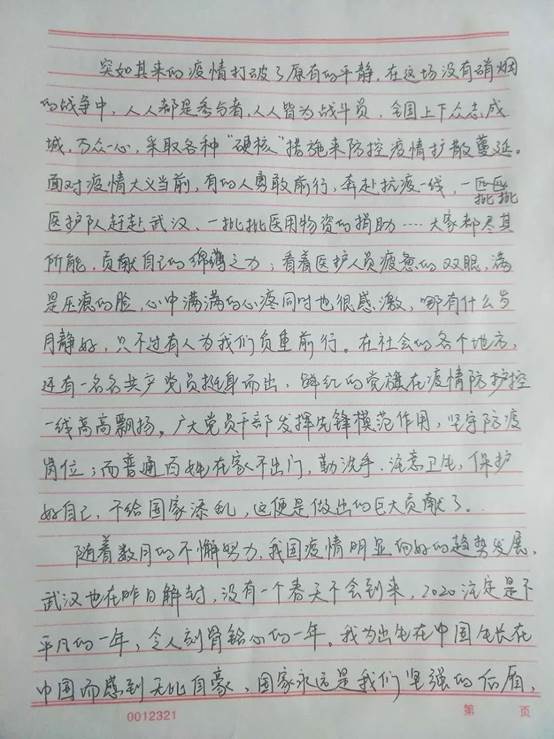 突如其来的疫情打破了原有的平静，在这场没有硝烟
的战争中，人人都是参与者，人人皆为战斗员，全国上下众志成
城，万众一心，采取各种“硬核”措施来防控疫情扩散蔓延。
面对疫情大义当前，有的人勇敢前行，奔赴抗疫一线，一批批
医护队赶赴武汉、一批批医用物资的捐助……大家都尽其
所能，贡献自己的绵薄之力；看着医护人员疲惫的双眼，满
是压痕的脸，心中满满的心疼同时也很感激，哪有什么岁
月静好，只不过有人为我们负重前行。在社会的各个地方，
还有一名名共产党员挺身而出，鲜红的党旗在疫情防护控
一线高高飘扬。广大党员干部发挥先锋模范作用，坚守防疫
岗位；而普通百姓在家不出门，勤洗手，注意卫生，保护
好自己，不给国家添乱，这便是做出的巨大贡献了。
随着数月的不懈努力，我国疫情明显向好的趋势发展，
武汉也在昨日解封，没有一个春天不会到来，2020注定是不
平凡的一年，令人刻骨铭心的一年。我为出生在中国生长在
中国而感到无比自豪，国家永远是我们坚强的后盾，
0012321 第 页